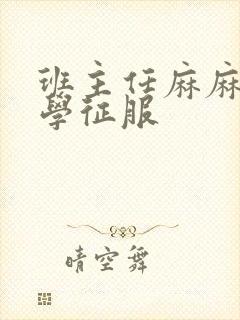 班主任麻麻
學征服
晴空舞